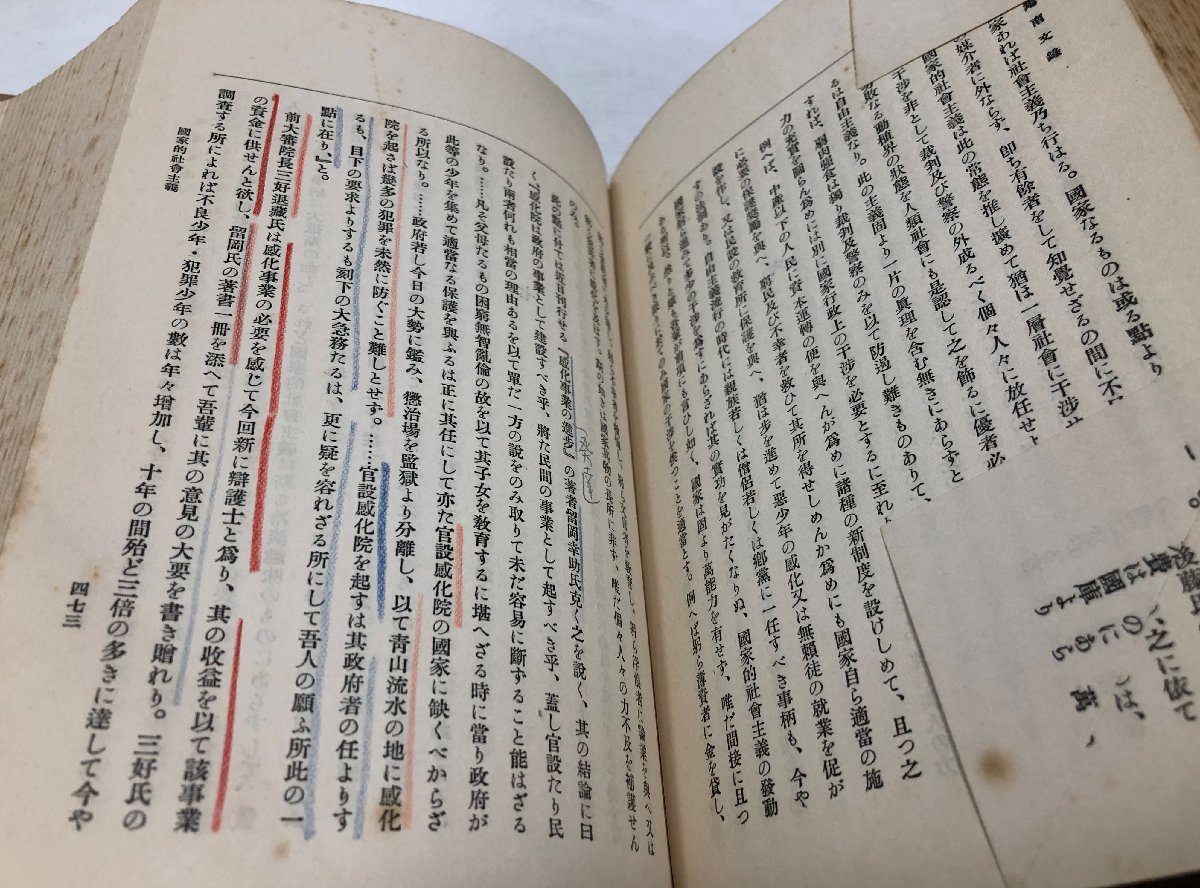 羯南文錄
家あれば社會主義乃ち行はる。國家なるものは或る點より
媒介者に外ならず、卽ち有餘者をして知覺せざるの間に不
國家的社會主義は此の常態を推し擴めて猶ほ一層社會に干涉
干涉を非として裁判及び警察の外成るべく個々人々に放任せ
敢なる動種界の狀態を人類社會にも是認して之を飾るに優者必
るは自由主義なり。此の主義固より一片の眞理を含む無きにあらずと
すれば、弱肉强食は獨り裁判及警察のみを以て防遏し難きものありて、
力の光輝を賜らん爲めには別に國家行政上の干涉を必要とするに至れ
例へば、中產以下の人民に資本運轉の便を與へんが爲めに諸種の新制度を設けしめて、且つ之
に必要の保護奬勵を與へ、窮民及び不幸者を救ひて其所を得せしめんか爲めにも國家自ら適當の施
設を作し、又は民設の敎育所に保護を與へ、猶ほ步を進めて惡少年の感化又は無賴徒の就業を促が
すの法制あり。自由主義流行の時代には親族若しくは僧侶若しくは鄕黨に一任すべき事柄も、今や
國家進みて多少の干涉を爲すにあらざれば其の實功を見がたくなりぬ、國家的社會主義の發動
ある所以、然れども吾輩が前號にも言ひし如く、國家は固より萬能力を有せず、唯だ間接に且つ
のみ。
此の點に付ては近日刊行せる『感化事業の進步』の著者留岡幸助氏克く之を說く、其の結論に曰
く『感化院は政府の事業として建設すべき乎、將た民間の事業として起すべき乎、蓋し官設たり民
設たり兩者何れも相當の理由あるを以て單だ一方の說をのみ取りて未だ容易に斷ずること能はざる
なり。……凡そ父母たるもの困窮無智亂倫の故を以て其子女を敎育するに堪へざる時に當り政府が
此等の少年を集めて適當なる保護を與ふるは正に其任にして亦た官設感化院の國家に缺くべからざ
る所以なり。……政府若し今日の大勢に鑑み、懲治場を監獄より分離し、以て靑山流水の地に感化
院を起さば幾多の犯罪を未然に防ぐこと難しとせず。……官設感化院を起すは其政府者の任よりす
るも、目下の要求よりするも刻下の大急務たるは、更に疑を容れざる所にして吾人の願ふ所此の一
點に在り。』と。
前大審院長三好退藏氏は感化事業の必要を感じて今回新に辯護士と爲り、其の收益を以て該事業
の資金に供せんと欲し、留岡氏の著書一冊を添へて吾輩に其の意見の大要を書き贈れり。三好氏の
調査する所によれば不良少年・犯罪少年の數は年々增加し、十年の間殆ど三倍の多きに達して今や
國家的社會主義
四七三